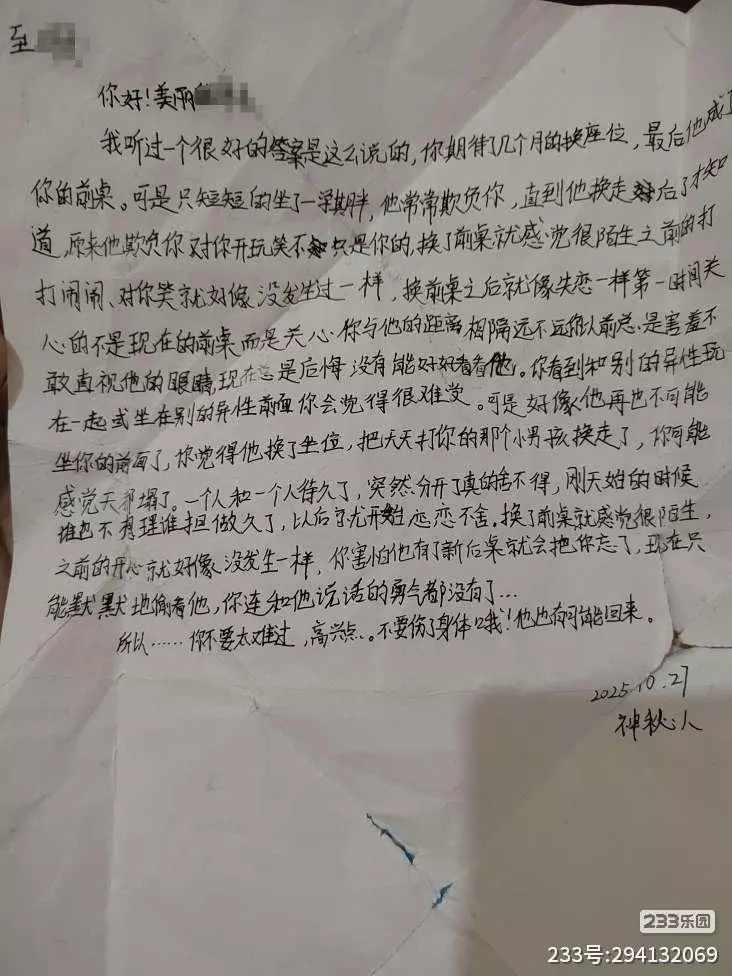 至
你好!美丽
我听过一个很好的答案是这么说的,你期待了几个月的换座位,最后他成了
你的前桌。可是只短短的坐了一学期半,他常常欺负你,直到他换走后了才知
道,原来他欺负你对你开玩笑不只是你的,换了前桌就感觉很陌生之前的打
打闹闹、对你笑就好像没发生过一样,换前桌之后就像失恋一样第一时间关
心的不是现在的前桌而是关心你与他的距离相隔远不远你以前总是害羞不
敢直视他的眼睛,现在总是后悔没有能好好看看他。你看到和别的异性玩
在一起或坐在别的异性前面你会觉得很难受。可是好像他再也不可能
坐你的前面了,你觉得他换了坐位,把天天打你的那个小男孩换走了,你可能
感觉天都塌了。一个人和一个人待久了,突然分开了真的舍不得,刚开始的时候
谁也不理谁但做久了,以后就开始恋恋不舍。换了前桌就感觉很陌生,
之前的开心就好像没发生一样,你害怕他有了新后桌就会把你忘了,现在只
能默默地偷看他,你连和他说话的勇气都没有了...
所以……你不要太难过,高兴点。不要伤了身体哦!他也有可能回来。
2025.10.27
神秘人
233乐园
233号:294132069